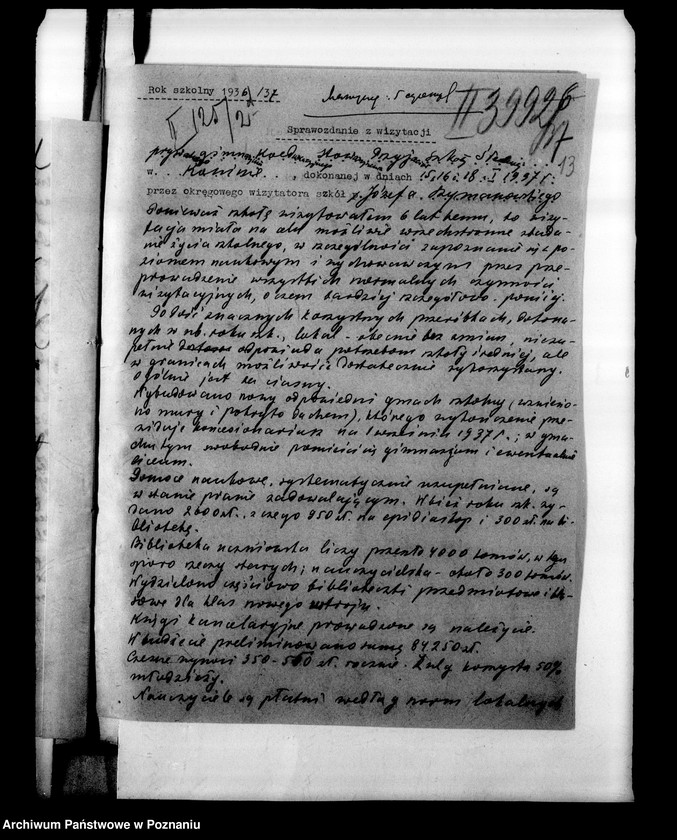 Rok szkolny 1936/37
II 39926
37
II/25/2
13
Sprawozdanie z wizytacji
w Koninie, dokonanej w dniach 15, 16 i 18. I 1937 r.
przez okręgowego wizytatora szkół p. Józefa Szymańskiego
Ponieważ szkołę wizytowałem 6 lat temu, to wizy-
tacja miała na celu możliwie wszechstronne zbada-
nie życia szkolnego, w szczególności zapoznanie się z po-
ziomem naukowym i wychowawczym przez prze-
prowadzenie wszystkich normalnych czynności
wizytacyjnych, o czem bardziej szczegółowo poniżej.
Po dość znacznych korzystnych przeróbkach, dokona-
nych w ub. roku szk., lokal - obecnie bez zmian, niezu-
pełnie odpowiada potrzebom szkoły średniej, ale
w granicach możliwości dostatecznie wykorzystany.
Ogólnie jest za ciasny.
Wybudowano nowy odpowiedni gmach szkolny (wzniesio-
no mury i pokryto dachem), którego wykończenie prze-
widuje koncesjonariusz na 1 września 1937 r.; w gma-
chu tym swobodnie pomieści się gimnazjum i ewentualnie
liceum.
Pomoce naukowe, systematycznie uzupełniane, są
w stanie prawie zadowalającym. W bież. roku szk. wy-
dano 2000 zł., z czego 850 zł. na epidiaskop i 300 zł. na bi-
bliotekę.
Biblioteka uczniowska liczy przeszło 4000 tomów, w tym
sporo rzeczy starych; nauczycielska - około 300 tomów.
Wydzielono częściowo biblioteczki przedmiotowe i kla-
sowe dla klas nowego ustroju.
Księgi kancelaryjne prowadzone są należycie.
W budżecie preliminowano sumę 84250 zł.
Czesne wynosi 350-500 zł. rocznie. Z ulg korzysta 50%
młodzieży.
Nauczyciele są płatni według norm lokalnych
Archiwum Państwowe w Poznaniu